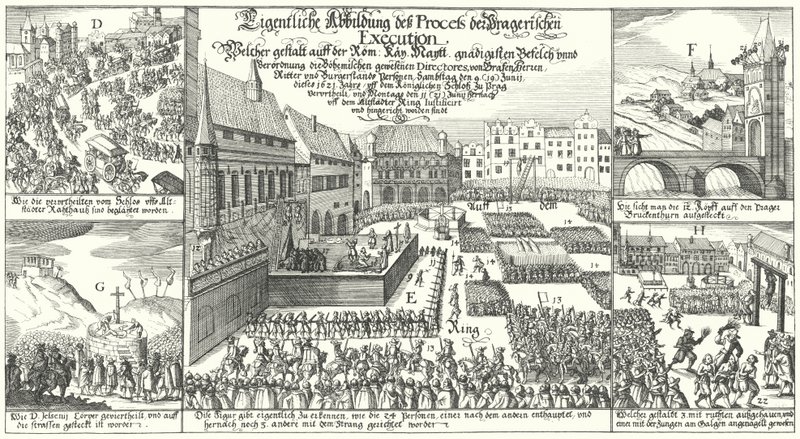 Eigentliche Abbildung deß Process der Pragerischen
Execution.
Welcher gestalt auff der Röm: Käy. Maytt. gnädigisten Befelch vnnd
Verordnung die Böhemischen gewesenen Directores, von Grafen, Herren,
Ritter vnd Burgerstands Personen, Sambstag den 9 (19) Junij,
dieses 1621 Jahrs, vff dem Königlichen Schloß zu Prag
Verurtheilt, vnd Montags den 11 (21) Junij hernach
vff dem Altstädter Ring Iustificiert
vnd hingericht worden sindt
D
Wie die verurtheilten vom Schlos vffs Alt=
städter Rahthauß sind begläitet worden.
F
Wie sicht man die 12. Köpff auff den Prager
Bruckenthurn auffgesteckt.
G
Wie D. Jessenij Cörper geviertheilt, vnd auff
die strassen gesteckt ist worden.
Auff dem
12
14
14
14
11
9
E
13
Ring
13
Dise Figur gibt eigentlich zu erkennen, wie die 24 Personen, einer nach dem andern enthauptet, vnd
hernach noch 3. andere mit dem Strang gerichtet worden
H
22
Welcher gestallt 3. mit ruhten außgehauen, vnd
einer mit der Zungen am Galgen angenagelt gewesen